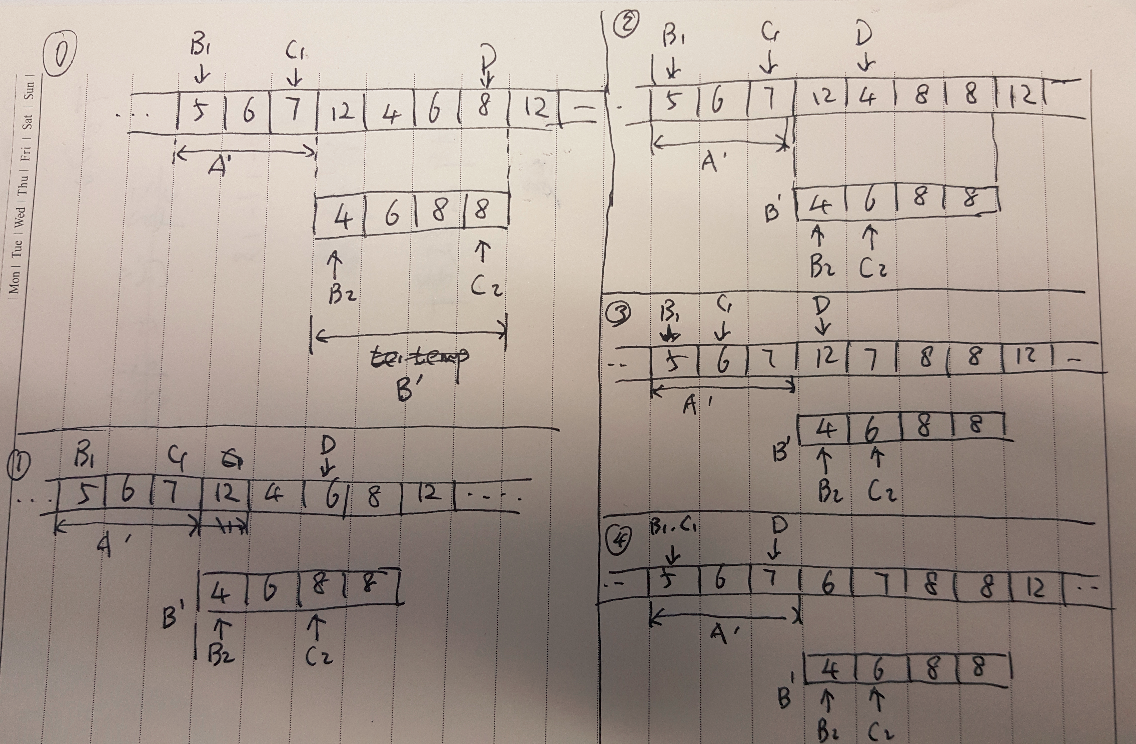 Mon | Tue | Wed | Thu | Fri | Sat | Sun |
⓪
B₁ C₁ D
.... 5 6 7 12 4 6 8 12
A'
4 6 8 8
B₂ C₂
B'
①
B₁ C₁ D
... 5 6 7 12 4 6 8 12 ....
A'
B' 4 6 8 8
B₂ C₂
②
B₁ C₁ D
. 5 6 7 12 4 8 8 12
A'
B' 4 6 8 8
B₂ C₂
③
B₁ C₁ D
.. 5 6 7 12 7 8 8 12
A'
B' 4 6 8 8
B₂ C₂
④
B₁.C₁ D
.. 5 6 7 6 7 8 8 12 ..
A'
B' 4 6 8 8
B₂ C₂